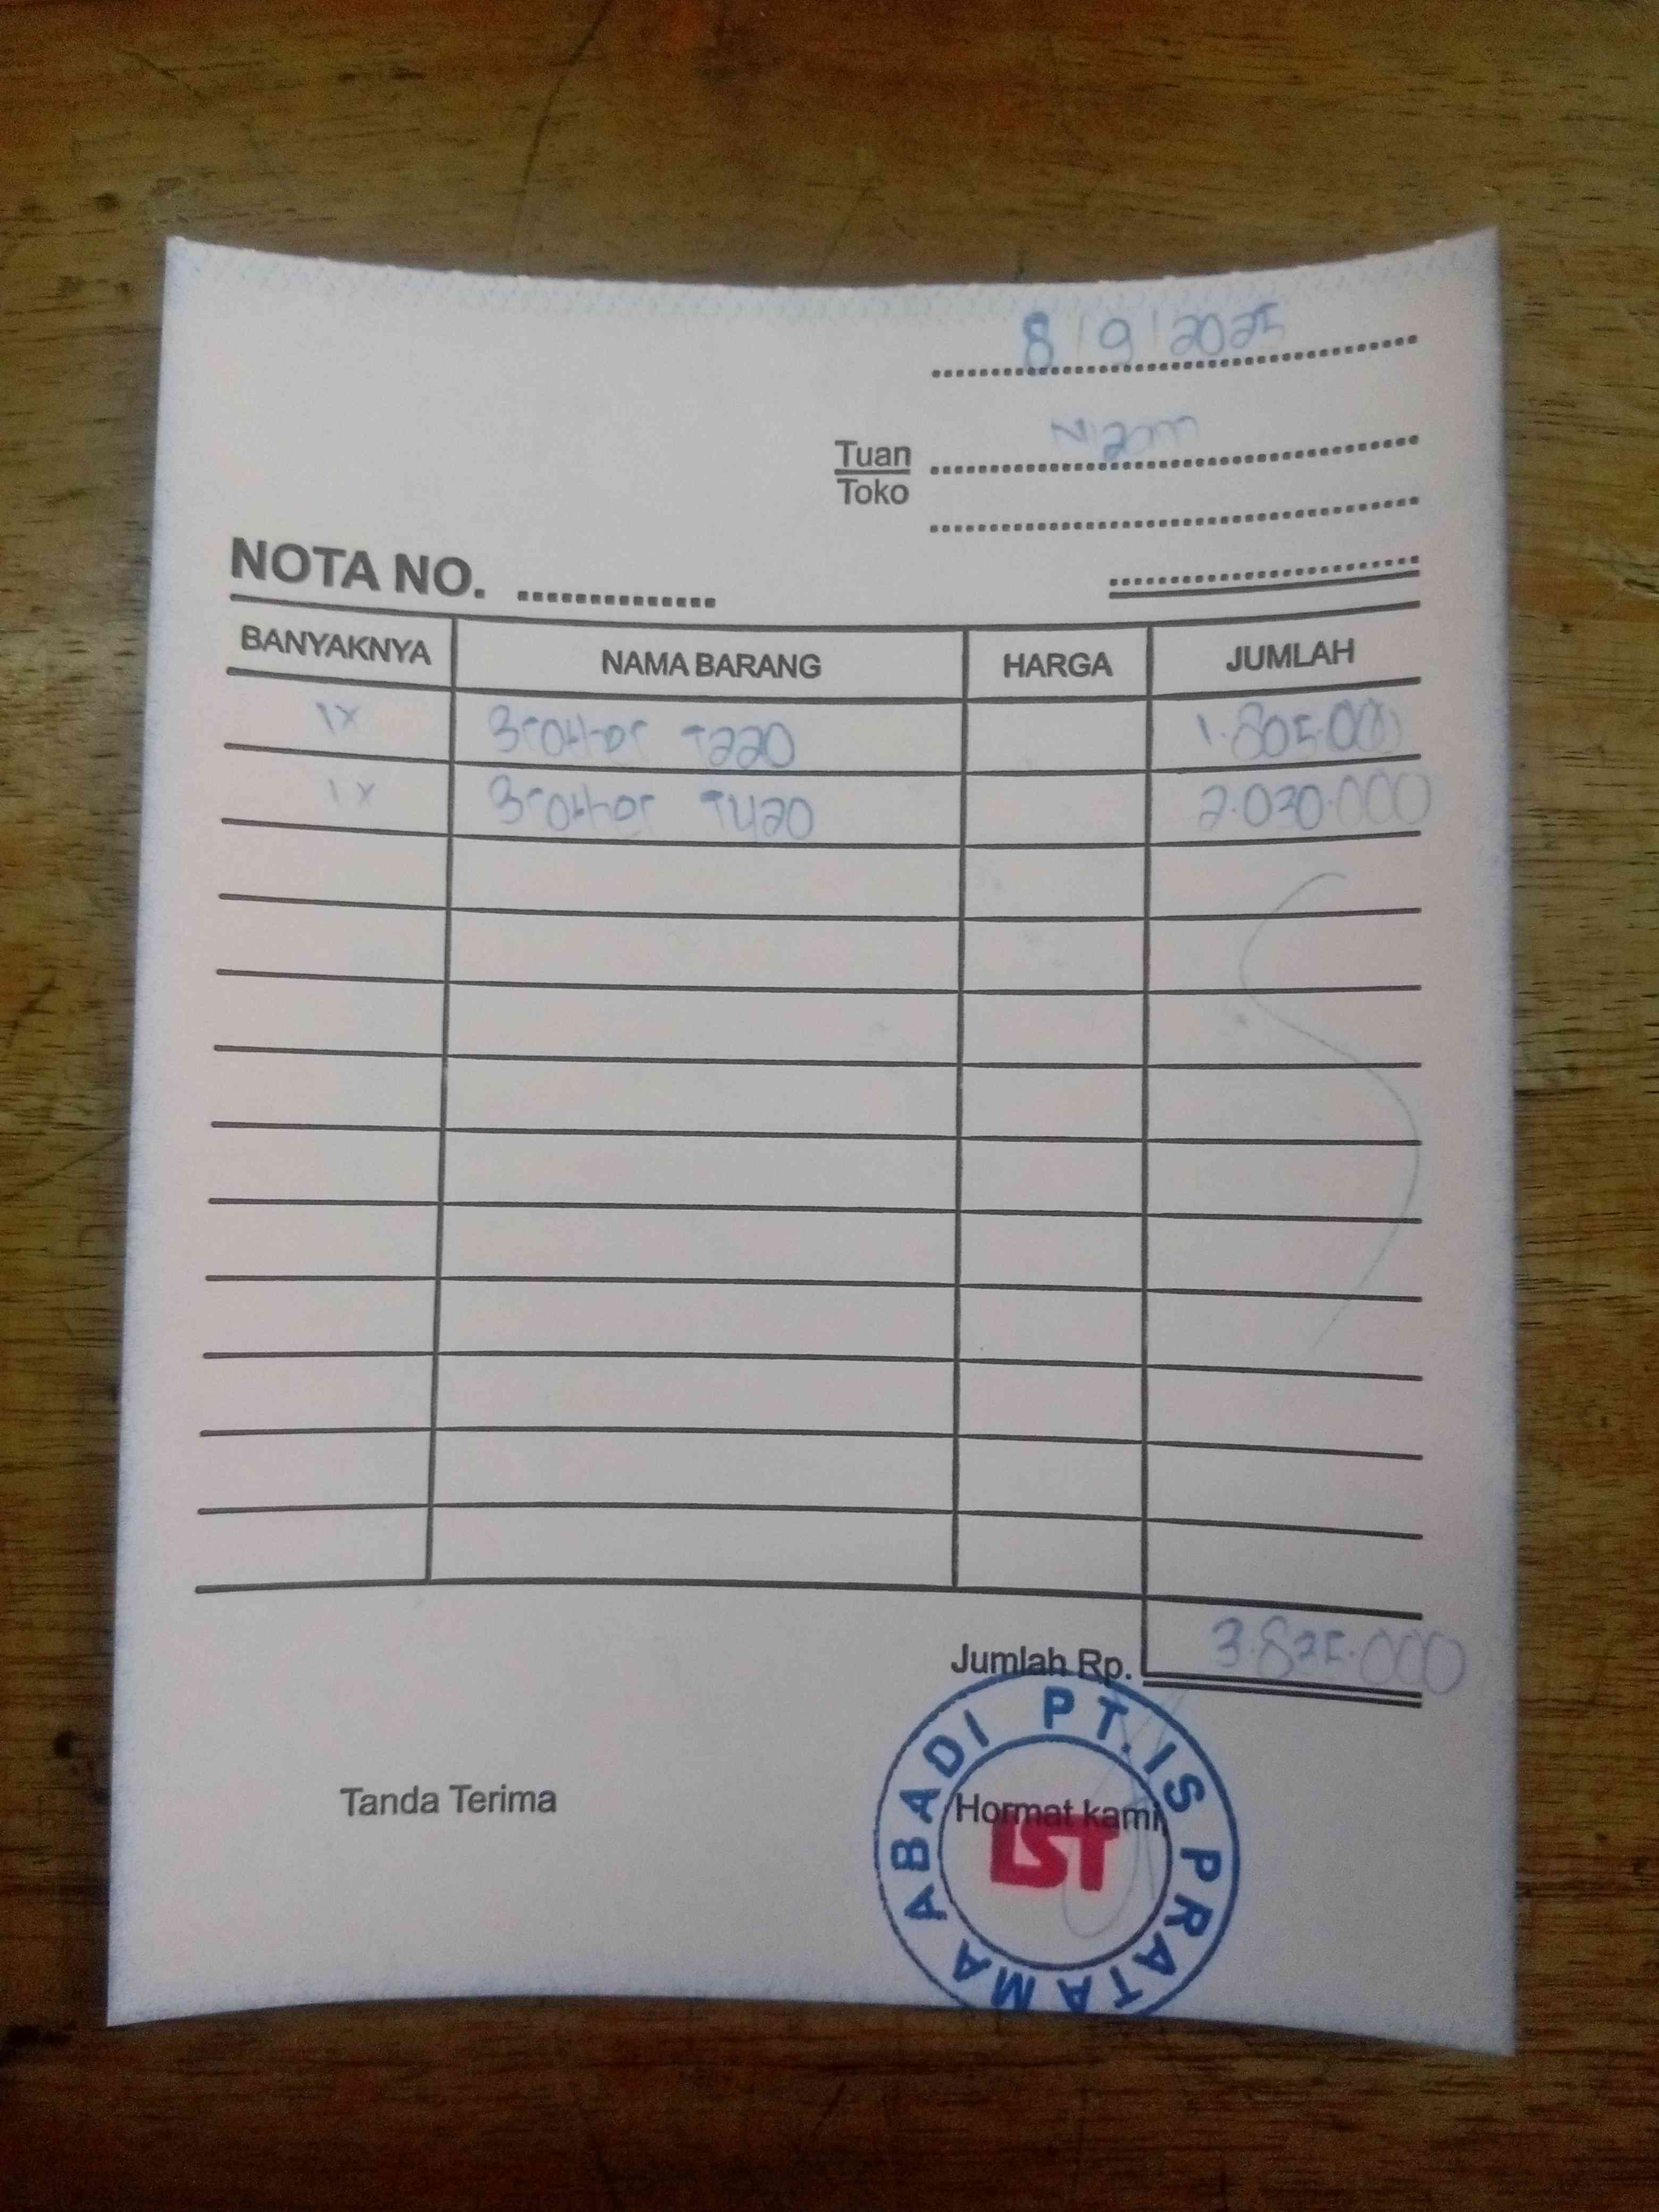 8/9/2025
Nizam
Tuan
Toko
NOTA NO.
BANYAKNYA NAMA BARANG HARGA JUMLAH
1x Brother T220 1.805.000
1x Brother T420 2.030.000
Jumlah Rp. 3.835.000
Tanda Terima
Hormat kami,
PT. IS PRATAMA ABADI
IST